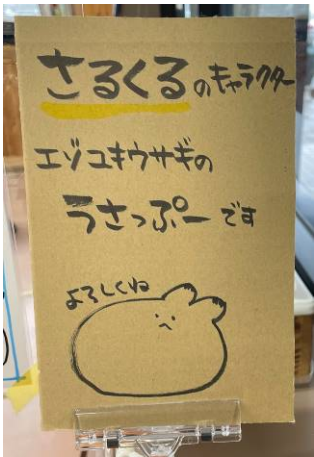 さるくるのキャラクター
エゾユキウサギの
うさっぷーです
よろしくね